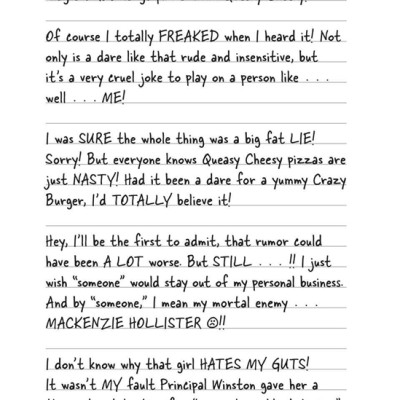 Of course I totally FREAKED when I heard it! Not
only is a dare like that rude and insensitive, but
it's a very cruel joke to play on a person like . . .
well . . . ME!
I was SURE the whole thing was a big fat LIE!
Sorry! But everyone knows Queasy Cheesy pizzas are
just NASTY! Had it been a dare for a yummy Crazy
Burger, I'd TOTALLY believe it!
Hey, I'll be the first to admit, that rumor could
have been A LOT worse. But STILL . . . !! I just
wish "someone" would stay out of my personal business.
And by "someone," I mean my mortal enemy . . .
MACKENZIE HOLLISTER ☹!!
I don't know why that girl HATES MY GUTS!
It wasn't MY fault Principal Winston gave her a